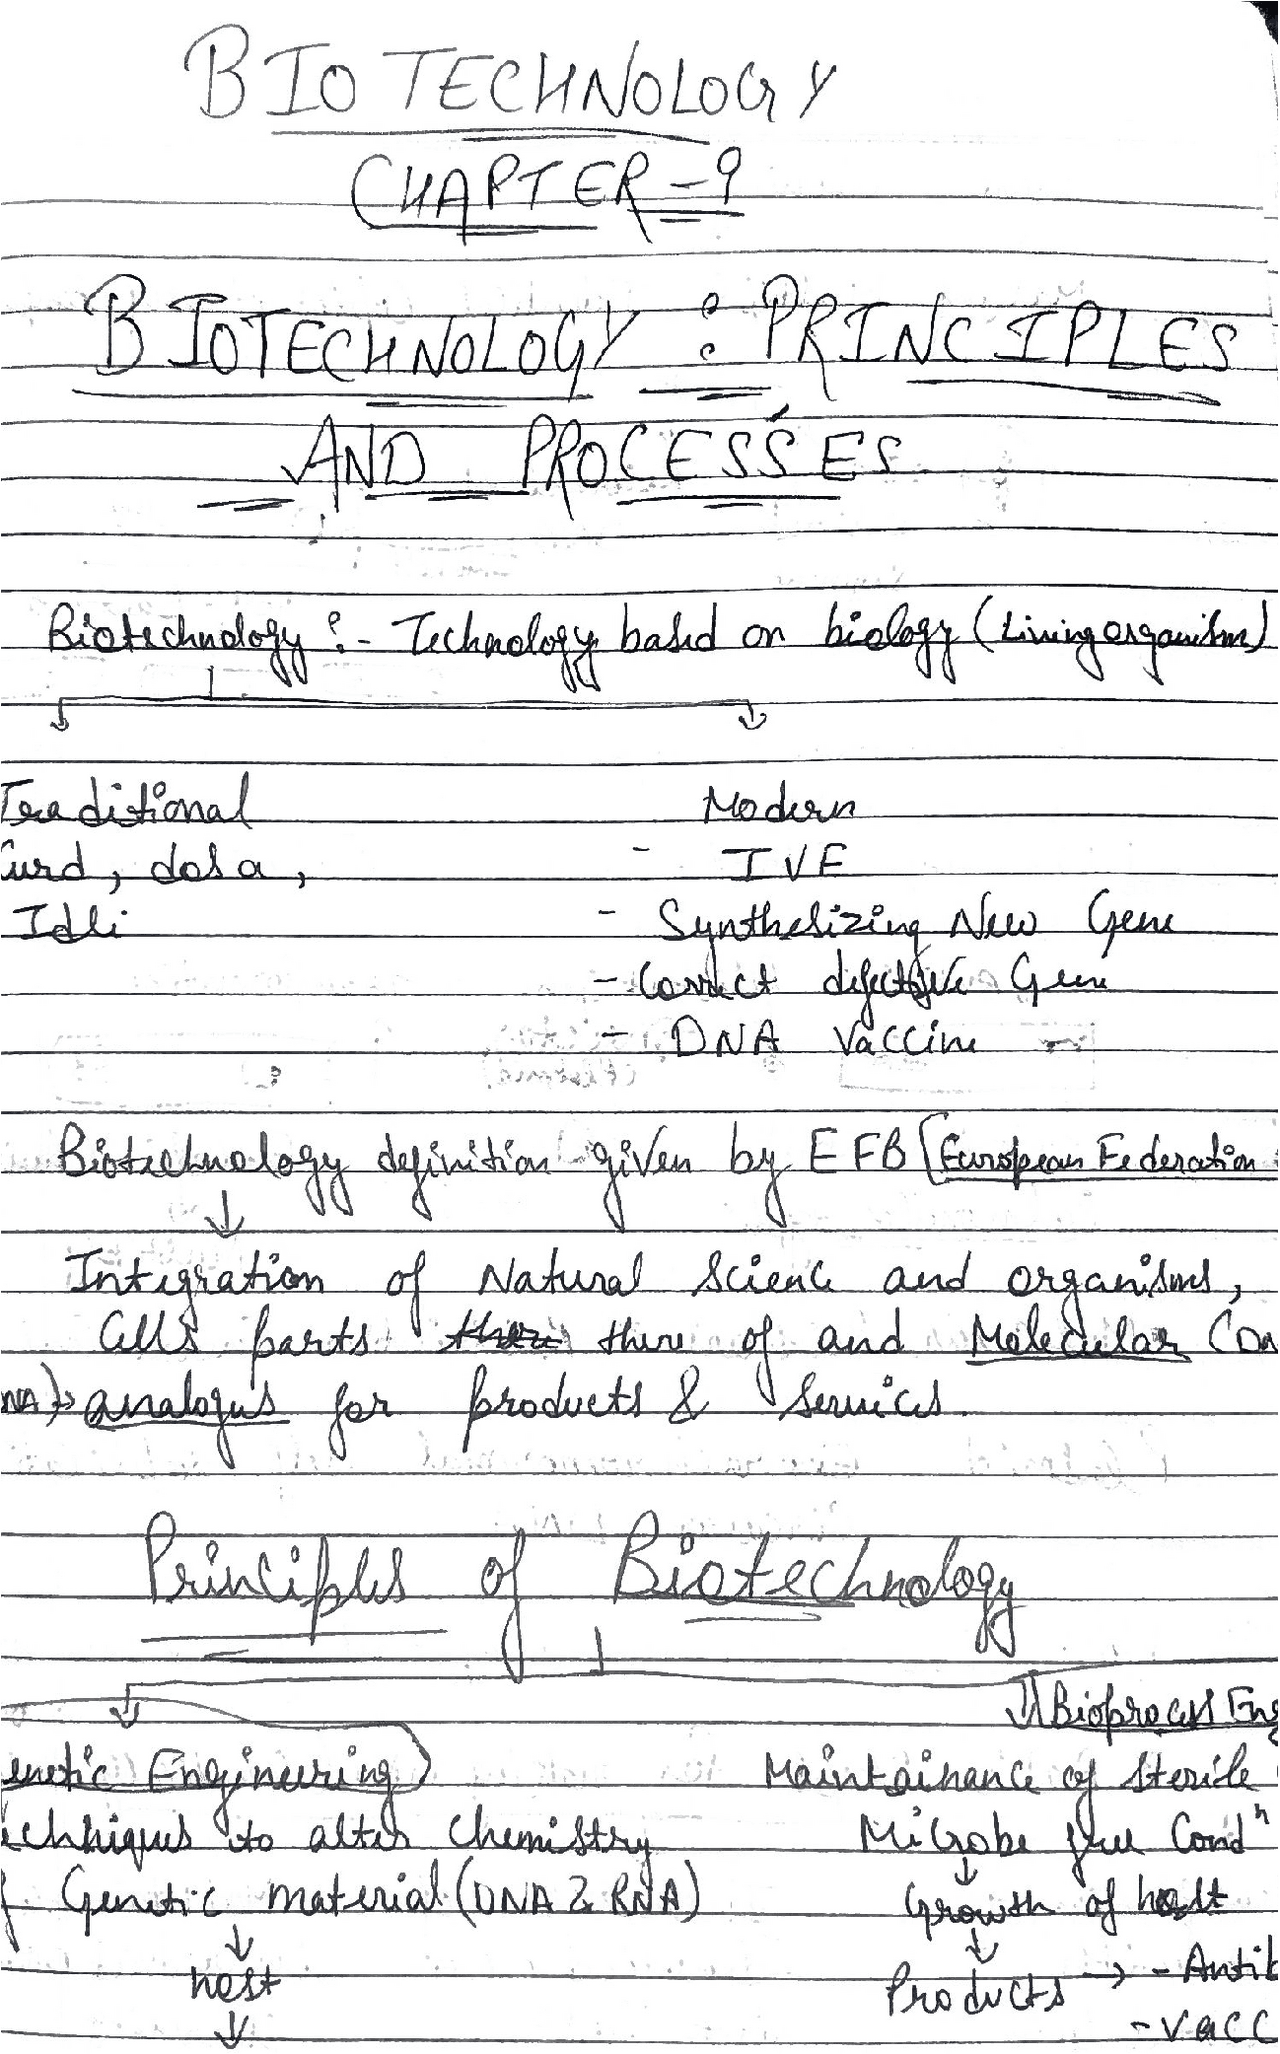 BIOTECHNOLOGY
CHAPTER-9
BIOTECHNOLOGY : PRINCIPLES
AND PROCESSES
Biotechnology :- Technology based on biology (Living organism)
Traditional
Curd, dosa,
Idli
Modern
- IVF
- Synthesizing New Gene
- Correct defective Gene
- DNA Vaccine
Biotechnology definition given by EFB [European Federation
↓
Integration of Natural Science and organisms,
Cells parts there of and Molecular (D
NA)→ analogus for products & Services.
Principles of Biotechnology
enetic Engineering
echniques to alter Chemistry
f Genetic material (DNA & RNA)
↓
host
↓
Bioprocess Eng
Maintainance of Sterile
Microbe free Condⁿ
↓
Growth of host
↓
Products → - Antib
- Vacc